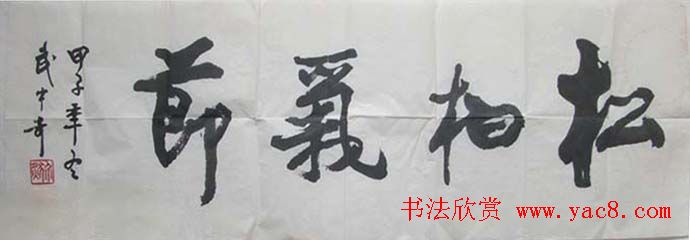 松柏義節
甲子年冬
武中奇
书法欣赏 www.yac8.com